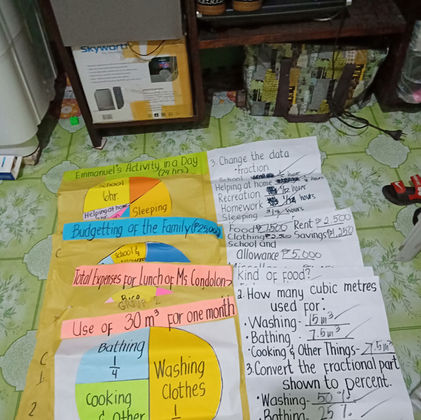 skyworth
Emmanuel's Activity in a Day
(24 hrs.)
School
6hr.
Helping at home
Sleeping
Budgetting of the Family (₱25,000)
School &
Total Expenses for Lunch of Ms. Condolon
Rice
Use of 30 m³ for one month
Bathing
1/4
Washing
Clothes
Cooking
& Other
3. Change the data
fraction
School
Helping at home
Recreation
Homework
Sleeping
Food ₱7,500 Rent ₱2,500
Clothing Savings ₱1,250
School and
Allowance ₱5,000
Kind of food?
2. How many cubic metres
used for.
• Washing- 15 m³
• Bathing - 7.5 m³
• Cooking & Other Things- 7.5 m³
3. Convert the fractional part
shown to percent.
• Washing- 50 %
• Bathing- 25 %